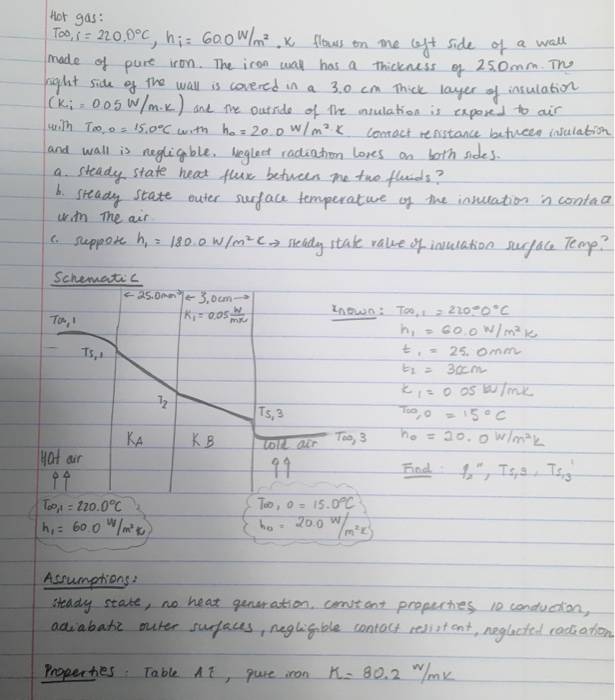 Hot gas:
T∞,i = 220.0°C, hi = 60.0 W/m².K flows on the left side of a wall
made of pure iron. The iron wall has a thickness of 25.0mm. The
right side of the wall is covered in a 3.0 cm thick layer of insulation
(Ki = 0.05 W/m.K) and the outside of the insulation is exposed to air
with T∞,o = 15.0°C with ho = 20.0 W/m².K. Contact resistance between insulation
and wall is negligible. Neglect radiation loses on both sides.
a. Steady state heat flux between the two fluids?
b. Steady state outer surface temperature of the insulation in contact
with the air.
c. suppose h1 = 180.0 W/m²C → steady state value of insulation surface Temp?
Schematic
← 25.0mm → ← 3.0cm →
K1 = 0.05 W/mK
T∞,1
Ts,1
T2
Ts,3
T∞,3
KA KB cold air
Hot air
T∞,1 = 220.0°C
h1 = 60.0 W/m²K
T∞,o = 15.0°C
ho = 20.0 W/m²K
Known: T∞,1 = 220.0°C
h1 = 60.0 W/m²K
t1 = 25.0mm
t2 = 3cm
k1 = 0.05 W/mK
T∞,o = 15°C
ho = 20.0 W/m²K
Find: q", Ts,3, Ts,3'
Assumptions:
steady state, no heat generation, constant properties, 1D conduction,
adiabatic outer surfaces, negligible contact resistant, neglected radiation
Properties: Table A1, pure iron K = 80.2 W/mK